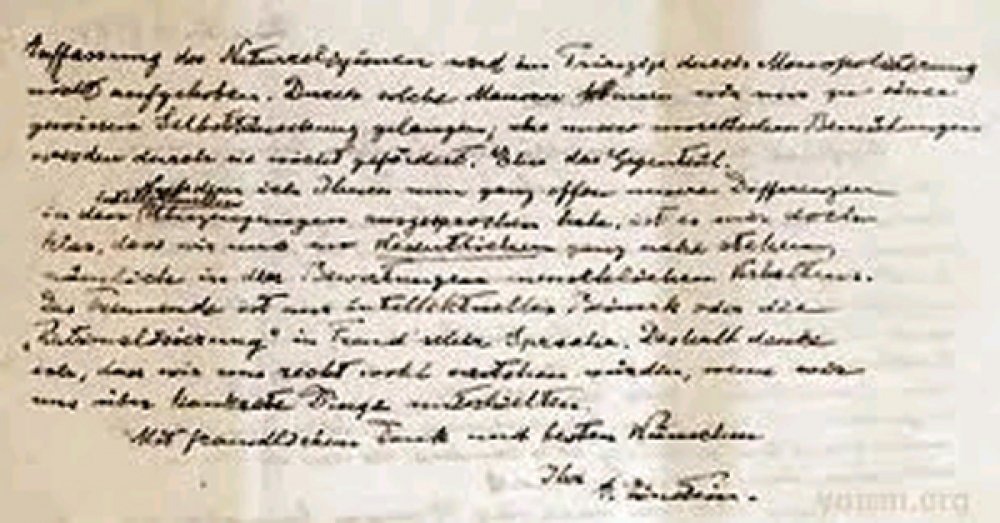 Auffassung der Naturreligionen wird im Prinzip durch Monopolisierung
nicht aufgehoben. Durch solche Mauern können wir nur zu einer
gewissen Selbsttäuschung gelangen; aber unsere moralischen Bemühungen
werden durch sie nicht gefördert. Eher das Gegenteil.
Nachdem ich Ihnen nun ganz offen unsere Differenzen
intellektuellen
in den Überzeugungen ausgesprochen habe, ist es mir doch
klar, dass wir uns im Wesentlichen ganz nahe stehen,
nämlich in den Bewertungen menschlichen Verhaltens.
Das Trennende ist nur intellektuelles Beiwerk oder die
„Rationalisierung" in Freud'scher Sprache. Deshalb denke
ich, dass wir uns recht wohl verstehen würden, wenn wir
uns über konkrete Dinge unterhielten.
Mit freundlichem Dank und besten Wünschen
Ihr
A. Einstein.